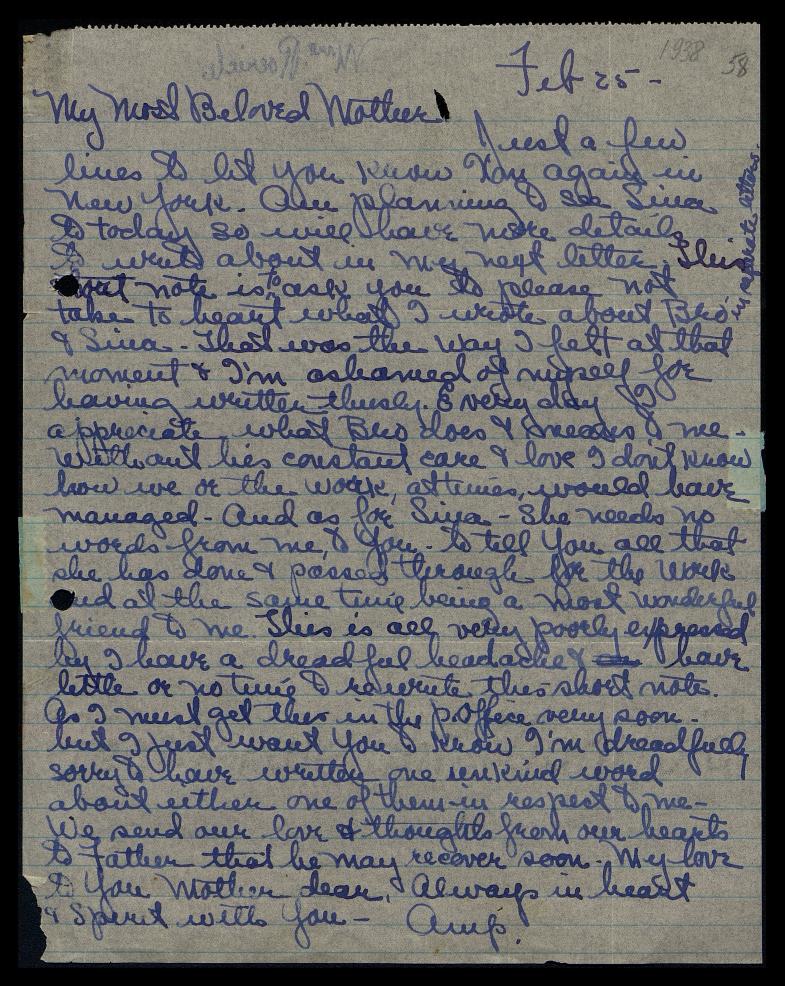 1938
58
Feb 25 -
My Most Beloved Mother
Just a few
lines to let you know I'm again in
New York. Am planning to see Sina
to today so will have more details
to write about in my next letter. This
short note is to ask you to please not
take to heart what I wrote about Bro
in separate letters.
& Sina - That was the way I felt at that
moment & I'm ashamed of myself for
having written thusly. Every day I
appreciate what Bro does & means to me -
Without his constant care & love I don't know
how we or the work, at times, would have
managed - And as for Sina - She needs no
words from me, to You - to tell You all that
she has done & passed through for the Work
and at the same time being a most wonderful
friend to me. This is all very poorly expressed
by I have a dreadful headache & have
little or no time to rewrite this short note.
As I must get this in the p.office very soon -
but I just want You to know I'm dreadfully
sorry to have written one unkind word
about either one of them in respect to me -
We send our love & thoughts from our hearts
to Father that he may recover soon. My love
to You Mother dear, & Always in heart
& Spirit with You -